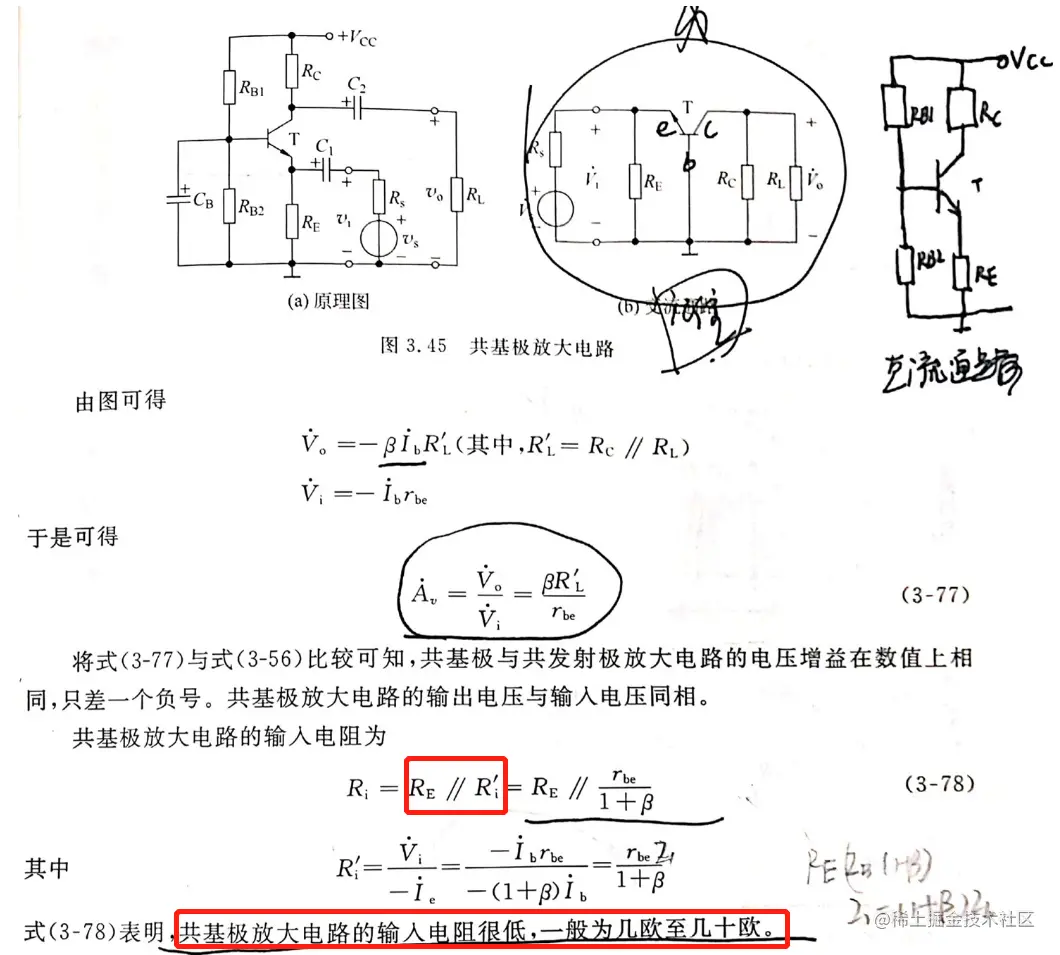 +VCC
RB1
RC
C2
T
C1
CB
RB2
RE
υi
Rs
υs
υo
RL
(a) 原理图
T
e
c
b
Rs
V̇i
RE
RC
RL
V̇o
(b) 交流通路
VCC
RB1
RC
T
RB2
RE
直流通路
图 3.45 共基极放大电路
由图可得
V̇o =-βİbR′L(其中,R′L= RC ∥ RL)
V̇i =-İbrbe
于是可得
Ȧv = V̇o/V̇i = βR′L/rbe (3-77)
将式(3-77)与式(3-56)比较可知,共基极与共发射极放大电路的电压增益在数值上相
同,只差一个负号。共基极放大电路的输出电压与输入电压同相。
共基极放大电路的输入电阻为
Ri = RE ∥ R′i = RE ∥ rbe/(1+β) (3-78)
其中 R′i = V̇i/(-İe) = (-İbrbe)/(-(1+β)İb) = rbe/(1+β)
式(3-78)表明,共基极放大电路的输入电阻很低,一般为几欧至几十欧。
@稀土掘金技术社区